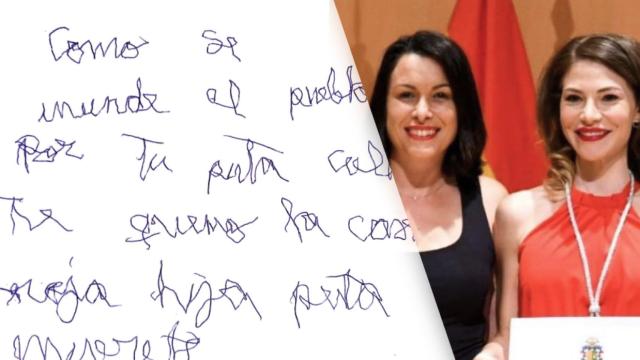 Como se
inunde el pueblo
Por Tu puta
Te quemo la casa
hija puta
muerete